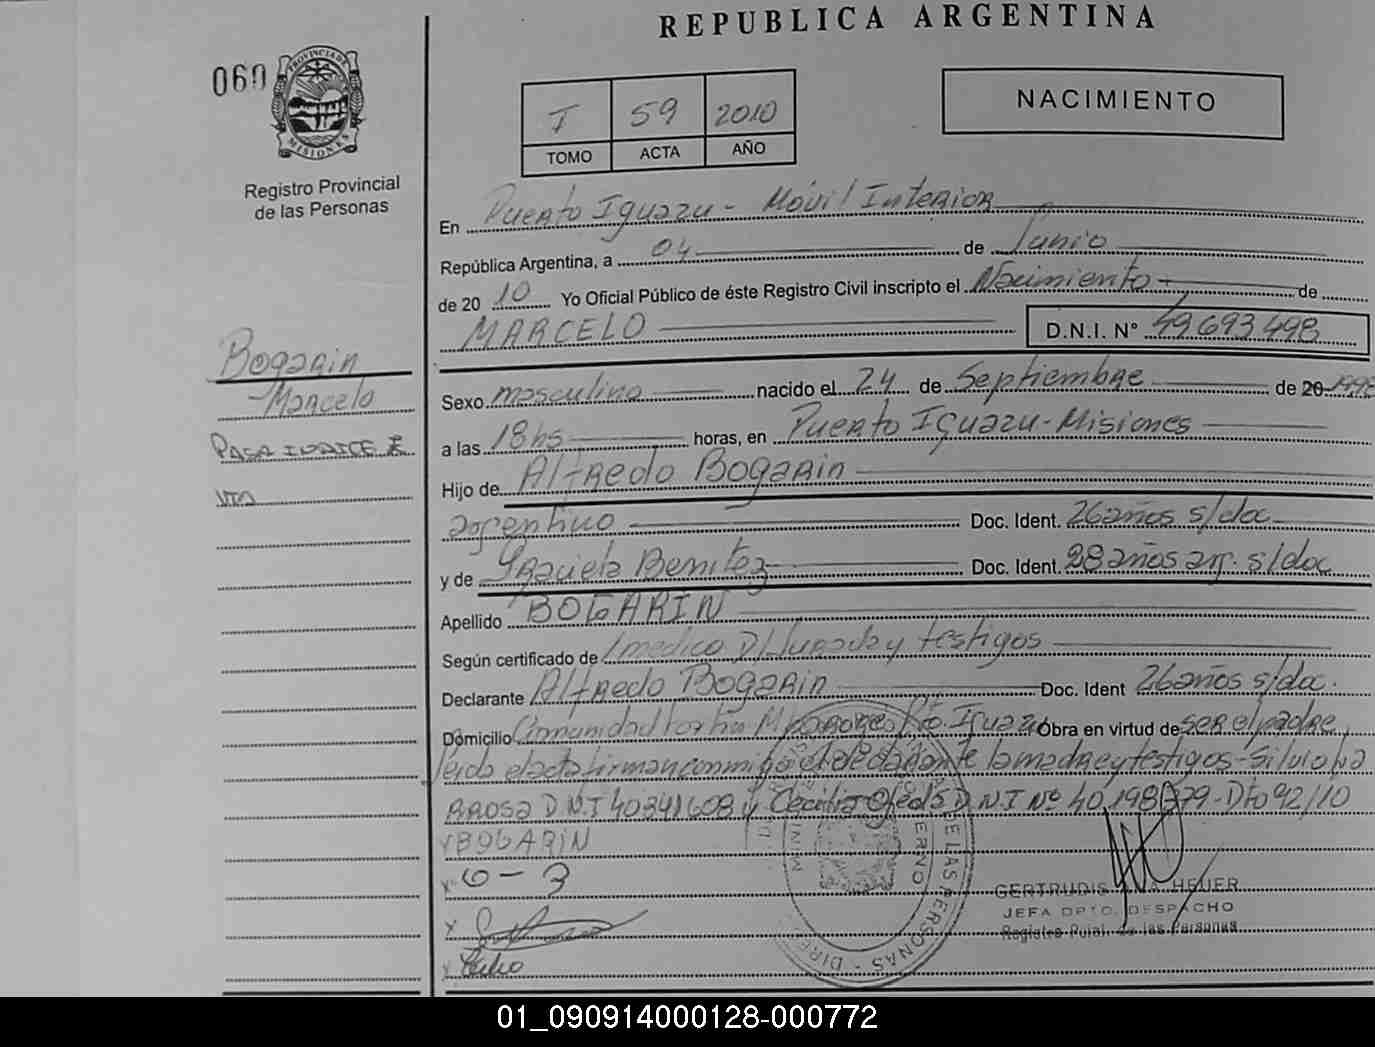 REPUBLICA ARGENTINA
060
PROVINCIA DE MISIONES
Registro Provincial
de las Personas
I 59 2010
TOMO ACTA AÑO
NACIMIENTO
En Puerto Iguazu - Móvil Interior
República Argentina, a 04 de Junio
de 20 10 Yo Oficial Público de éste Registro Civil inscripto el Nacimiento de
MARCELO D.N.I. N° 49.693.498
Bogarin
Marcelo
Sexo masculino nacido el 24 de Septiembre de 20 1998
a las 18hs horas, en Puerto Iguazu - Misiones
Hijo de Alfredo Bogarin
argentino Doc. Ident. 26 años s/doc
y de Graciela Benitez Doc. Ident. 28 años arg. s/doc
Apellido BOGARIN
Según certificado de medico y testigos
Declarante Alfredo Bogarin Doc. Ident 26 años s/doc.
Domicilio Comunidad Pto. Iguazu Obra en virtud de ser el padre
leida el acta firman conmigo el declarante la madre y testigos - Silvio
D.N.I 40341608 y Cecilia D.N.I Nº 40.198.279 - Dto 92/10
BOGARIN
GERTRUDIS HEUER
JEFA DPTO. DESPACHO
Registro Pcial. de las Personas
DE LAS PERSONAS
01_090914000128-000772